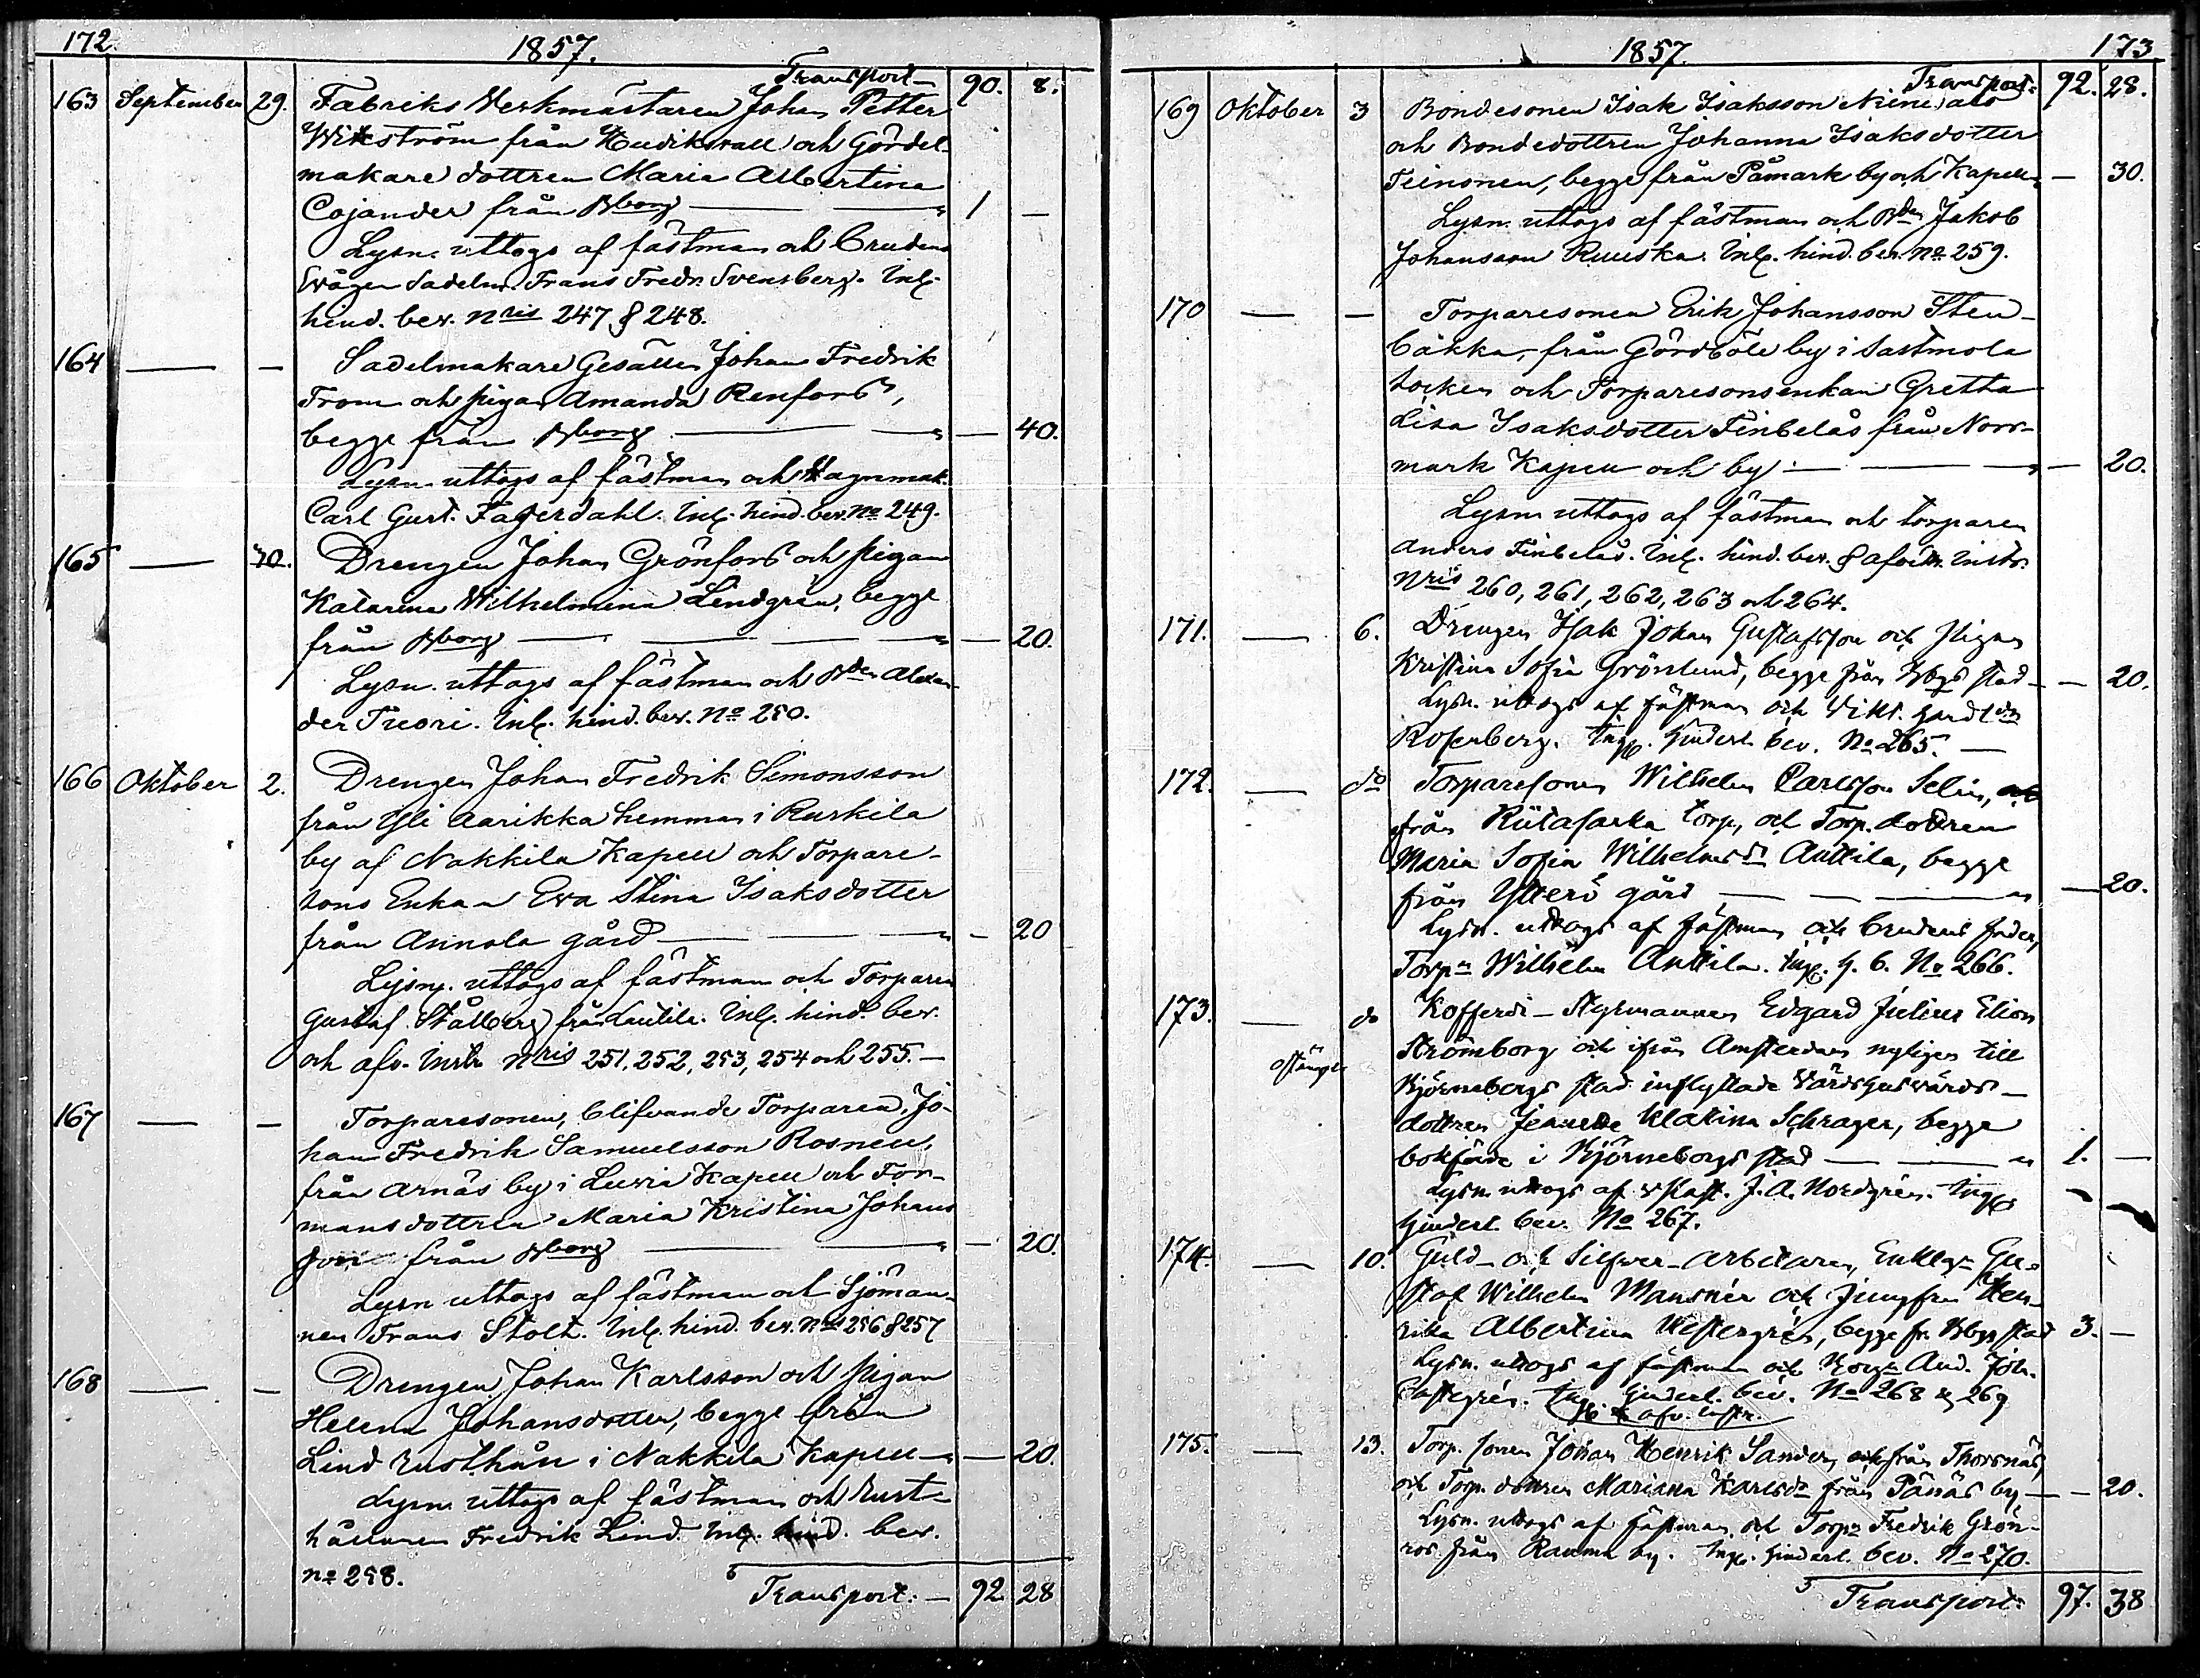 172.
1857.
Transport 90. 8.
163 September 29. Fabriks Werkmästaren Johan Petter
Wikström från Hudikswall och Gördel-
makare dottren Maria Albertina
Cojander från Bborg — 1 —
Lysn. uttogs af fästman och brudens
Sadelm. Frans Fredr. Svensberg. Inl.
hind. bev. Nris 247 & 248.
164 — — Sadelmakare Gesällen Johan Fredrik
Trom och pigan Amanda Renfors,
begge från Bborg — 40.
Lysn. uttogs af fästman och Wagnmak.
Carl Gust. Fagerdahl. Inl. hind. bev. No 249.
165 — 30. Drengen Johan Grönfors och pigan
Katarina Wilhelmina Lindgrén, begge
från Bborg — 20.
Lysn. uttogs af fästman och Alexan-
der Tuori. Inl. hind. bev. No 250.
166 Oktober 2. Drengen Johan Fredrik Simonsson
från Yli Aarikka hemman i Ruskila
by af Nakkila Kapell och Torpare-
sons Enkan Eva Stina Isaksdotter
från Annola gård — 20
Lysn. uttogs af fästman och Torparen
Gustaf Stålberg från Lautila. Inl. hind. bev.
och afv. Instr. Nris 251, 252, 253, 254 och 255. —
167 — — Torparesonen, blifvande Torparen, Jo-
han Fredrik Samuelsson Rosnell,
från Arnäs by i Luvia Kapell och For-
mansdottren Maria Kristina Johans
från Bborg — 20.
Lysn uttogs af fästman och Sjöman-
nen Frans Stolt. Inl. hind. bev. Nris 256 & 257
168 — — Drengen Johan Karlsson och pigan
Helena Johansdotter, begge från
Lind Rusthåll i Nakkila Kapell — 20.
Lysn. uttogs af fästman och Rust-
hållaren Fredrik Lind. Inl. hind. bev.
No 258.
Transport. — 92 28
1857. 173
Transport. 92. 28.
169 Oktober 3 Bondesonen Isak Isaksson Nieni
och Bondedottren Johanna Isaksdotter
Teinonen, begge från Påmark by och Kapell — 30.
Lysn. uttogs af fästman och Jakob
Johansson Ruuska. Inl. hind. bev. No 259.
170 — — Torparesonen Erik Johansson Sten-
backa, från Gårdböle by i Sastmola
socken och Torparesonsenkan Gretha
Lisa Isaksdotter Finbelås från Norr-
mark Kapell och by — 20.
Lysn uttogs af fästman och torparen
Anders Finbelås. Inl. hind. bev. & Instr.
Nris 260, 261, 262, 263 och 264.
171. — 6. Drengen Isak Johan Gustafsson och Pigan
Kristina Sofia Grönlund, begge från Bbgs stad — 20.
Lysn. uttogs af fästman och Vikt.
Rosenberg. Ingl. Hinderl. bev. No 265. —
172. — do Torparesonen Wilhelm Carlsson Selin,
från Riitasarka torp, och Torp. dottren
Maria Sofia Wilhelmsdr Anttila, begge
från Ytterö gård — 20.
Lysn. uttogs af fästman och brudens fader,
Torpn Wilhelm Anttila. Ingl. H. b. No 266.
173. — do Kofferdi-Styrmannen Edgard Julius Elion
Strömborg och ifrån Amsterdam nyligen till
Björneborgs stad inflyttade Värdshusvärds-
dottren Jeanette Klasina Schrager, begge
bokförde i Björneborgs stad — 1. —
Lysn. uttogs af J. A. Nordgrén. Ingl.
Hinderl. bev. No 267.
174. — 10. Guld- och Silfwer-Arbetaren, Enkl. Gu-
staf Wilhelm Mansnér och Jungfru Hen-
rika Albertina Westergrén, begge fr. Bbgs stad 3. —
Lysn. uttogs af fästman och And. Joh.
Castegrén. Ingl. Hinderl. bev. No 268 & 269
afv. instr.
175. — 13. Torp. sonen Johan Henrik Sander, från Thorsnäs,
och Torp. dottren Mariana Karlsdr från Pånäs by — 20.
Lysn. uttogs af fästman och Torpn Fredrik Grön-
ros från Rauma by. Ingl. hinderl. bev. No 270.
Transport. 97. 38